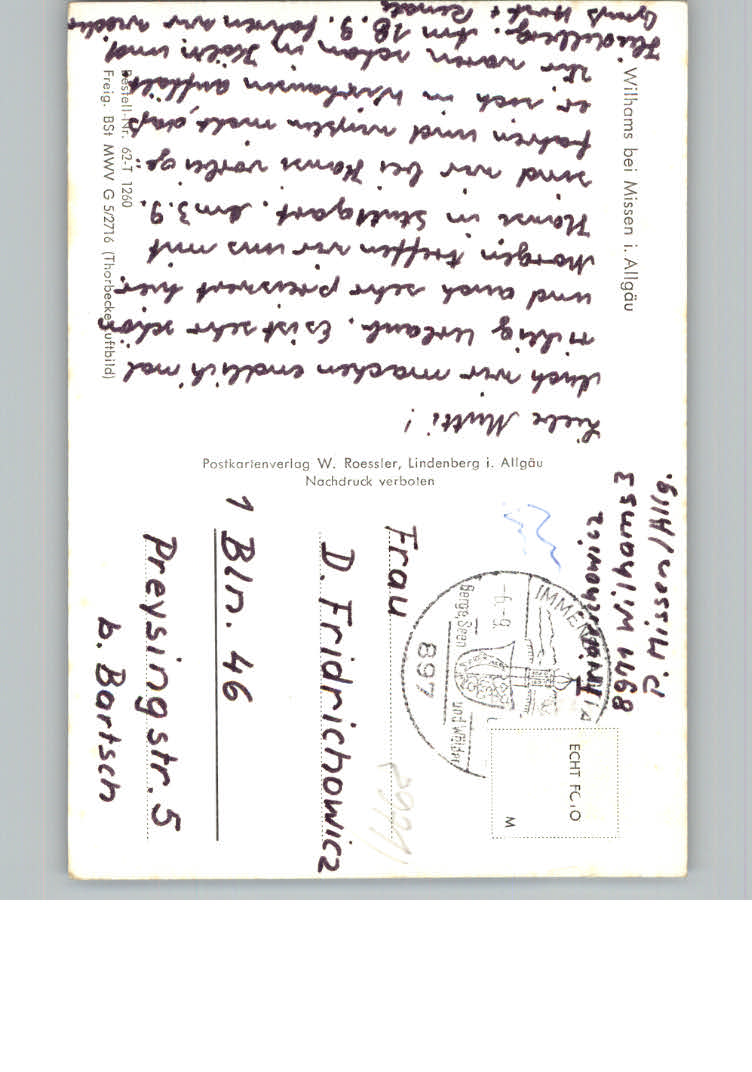 Wilhams bei Missen i. Allgäu
Liebe Mutti!
Auch wir machen endlich mal
richtig Urlaub. Es ist sehr schön
und auch sehr preiswert hier.
Morgen treffen wir uns mit
in Stuttgart. Am 3.9.
sind wir bei vorbeige
fahren und wußten nicht, daß
er sich in Wixhausen aufhält
Wir waren schon in Köln und
Heidelberg. Am 18.9. fahren wir wieder
Gruß Horst + Renate
Bestell-Nr. 62-T 1260
Freig. BSt MWV G 5/2716 (Thorbecke-Luftbild)
Postkartenverlag W. Roessler, Lindenberg i. Allgäu
Nachdruck verboten
Fridrichowicz
8971 Wilhams 53
b. Missen/Allg.
Berge, Seen
und Wälder
897
-6.-9.
ECHT FOTO
M
Frau
D. Fridrichowicz
1 Bln. 46
Preysingstr. 5
b. Bartsch